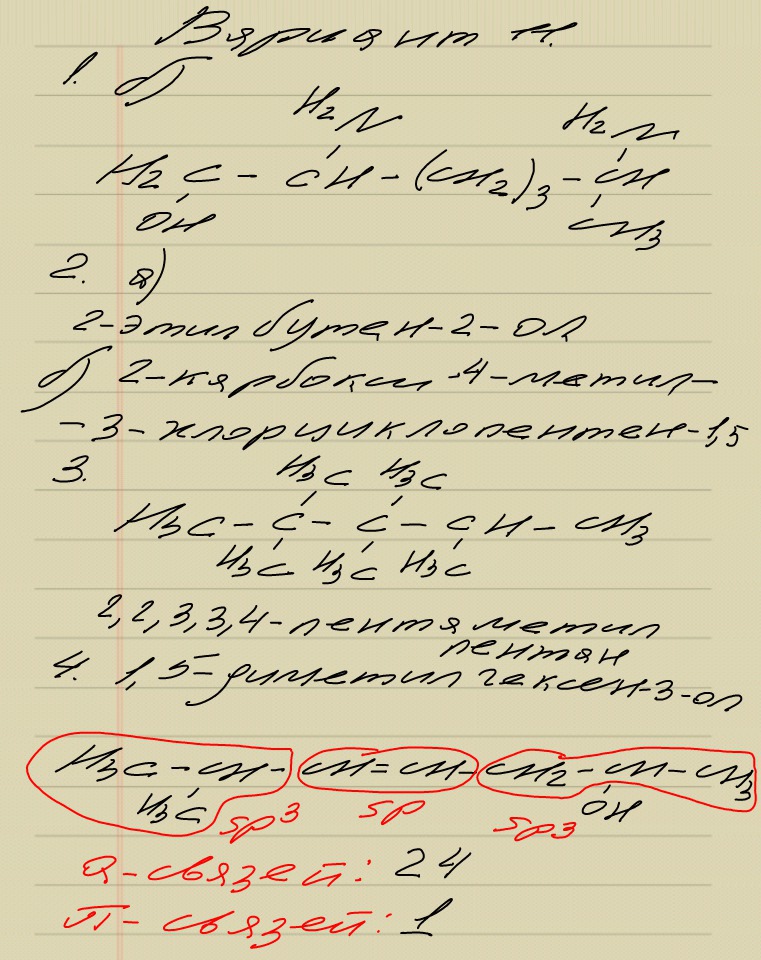 Вариант 14.
1. б)
H₂N H₂N
H₂C - CH - (CH₂)₃ - CH
OH CH₃
2. а)
2-этил бутен-2-ол
б) 2-карбокси -4-метил-
-3-хлорциклопентен-1,5
3. H₃C H₃C
H₃C - C - C - CH - CH₃
H₃C H₃C H₃C
2,2,3,3,4-пентаметил
пентан
4. 1,5-диметилгексен-3-ол
H₃C - CH - CH = CH - CH₂ - CH - CH₃
H₃C sp³ sp sp3 OH
Q-связей: 24
П-связей: 1